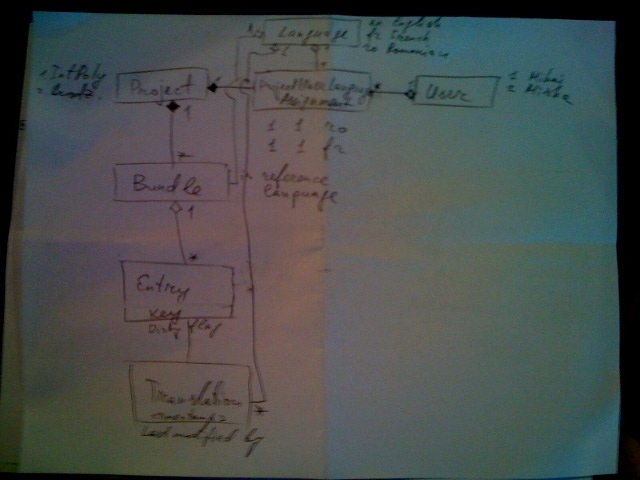 Language
en English
fr French
ro Romanian
Project
Project User Language
Assignment
User
1 Mihai
2
1
1 1 ro
1 1 fr
*
Bundle
reference
language
1
*
Entry
Key
Dirty flag
Translation
*
Last modified by